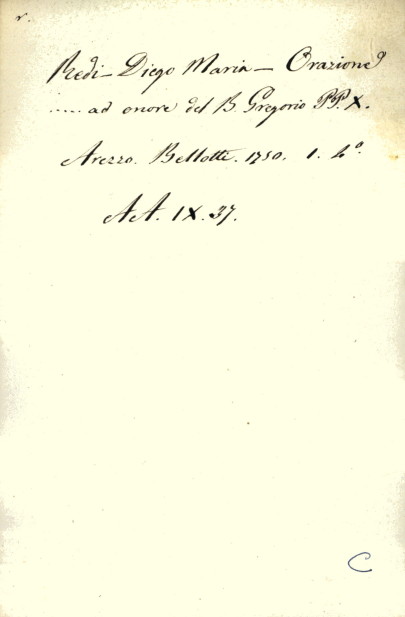 r.
Redi - Diego Maria - Orazione
..... ad onore del B. Gregorio PP. X.
Arezzo. Bellotti. 1750. 1. 4º.
AA. IX. 37.
C